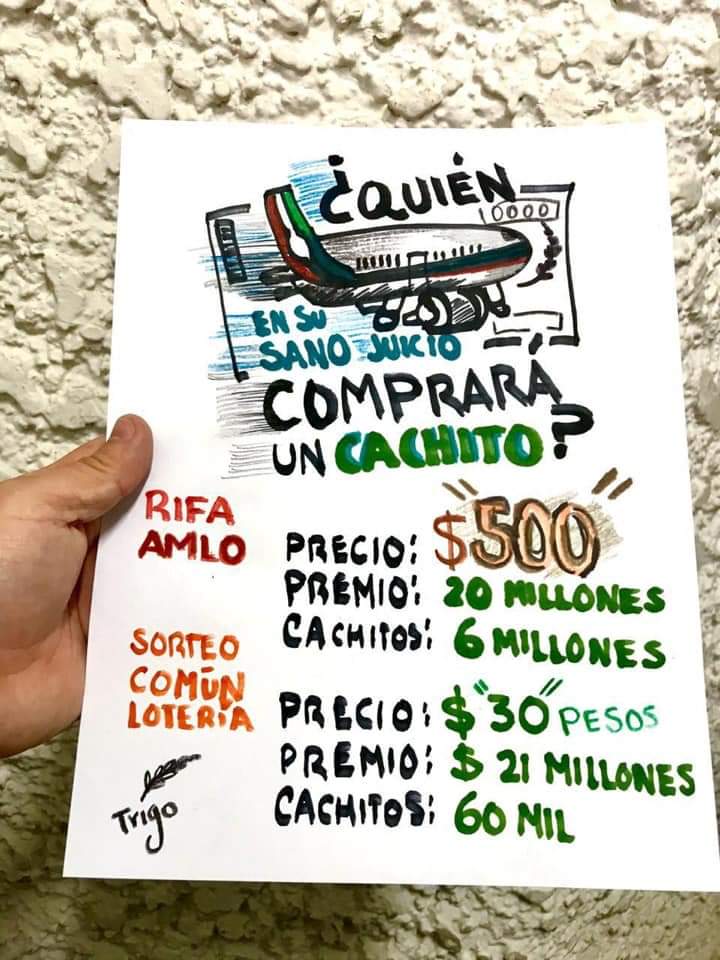 ¿QUIÉN
0000
EN SU
SANO JUICIO
COMPRARÁ
UN CACHITO?
RIFA
AMLO
PRECIO: $"500"
PREMIO: 20 MILLONES
CACHITOS: 6 MILLONES
SORTEO
COMÚN
LOTERÍA
PRECIO: $"30" PESOS
PREMIO: $ 21 MILLONES
CACHITOS: 60 MIL
Trigo